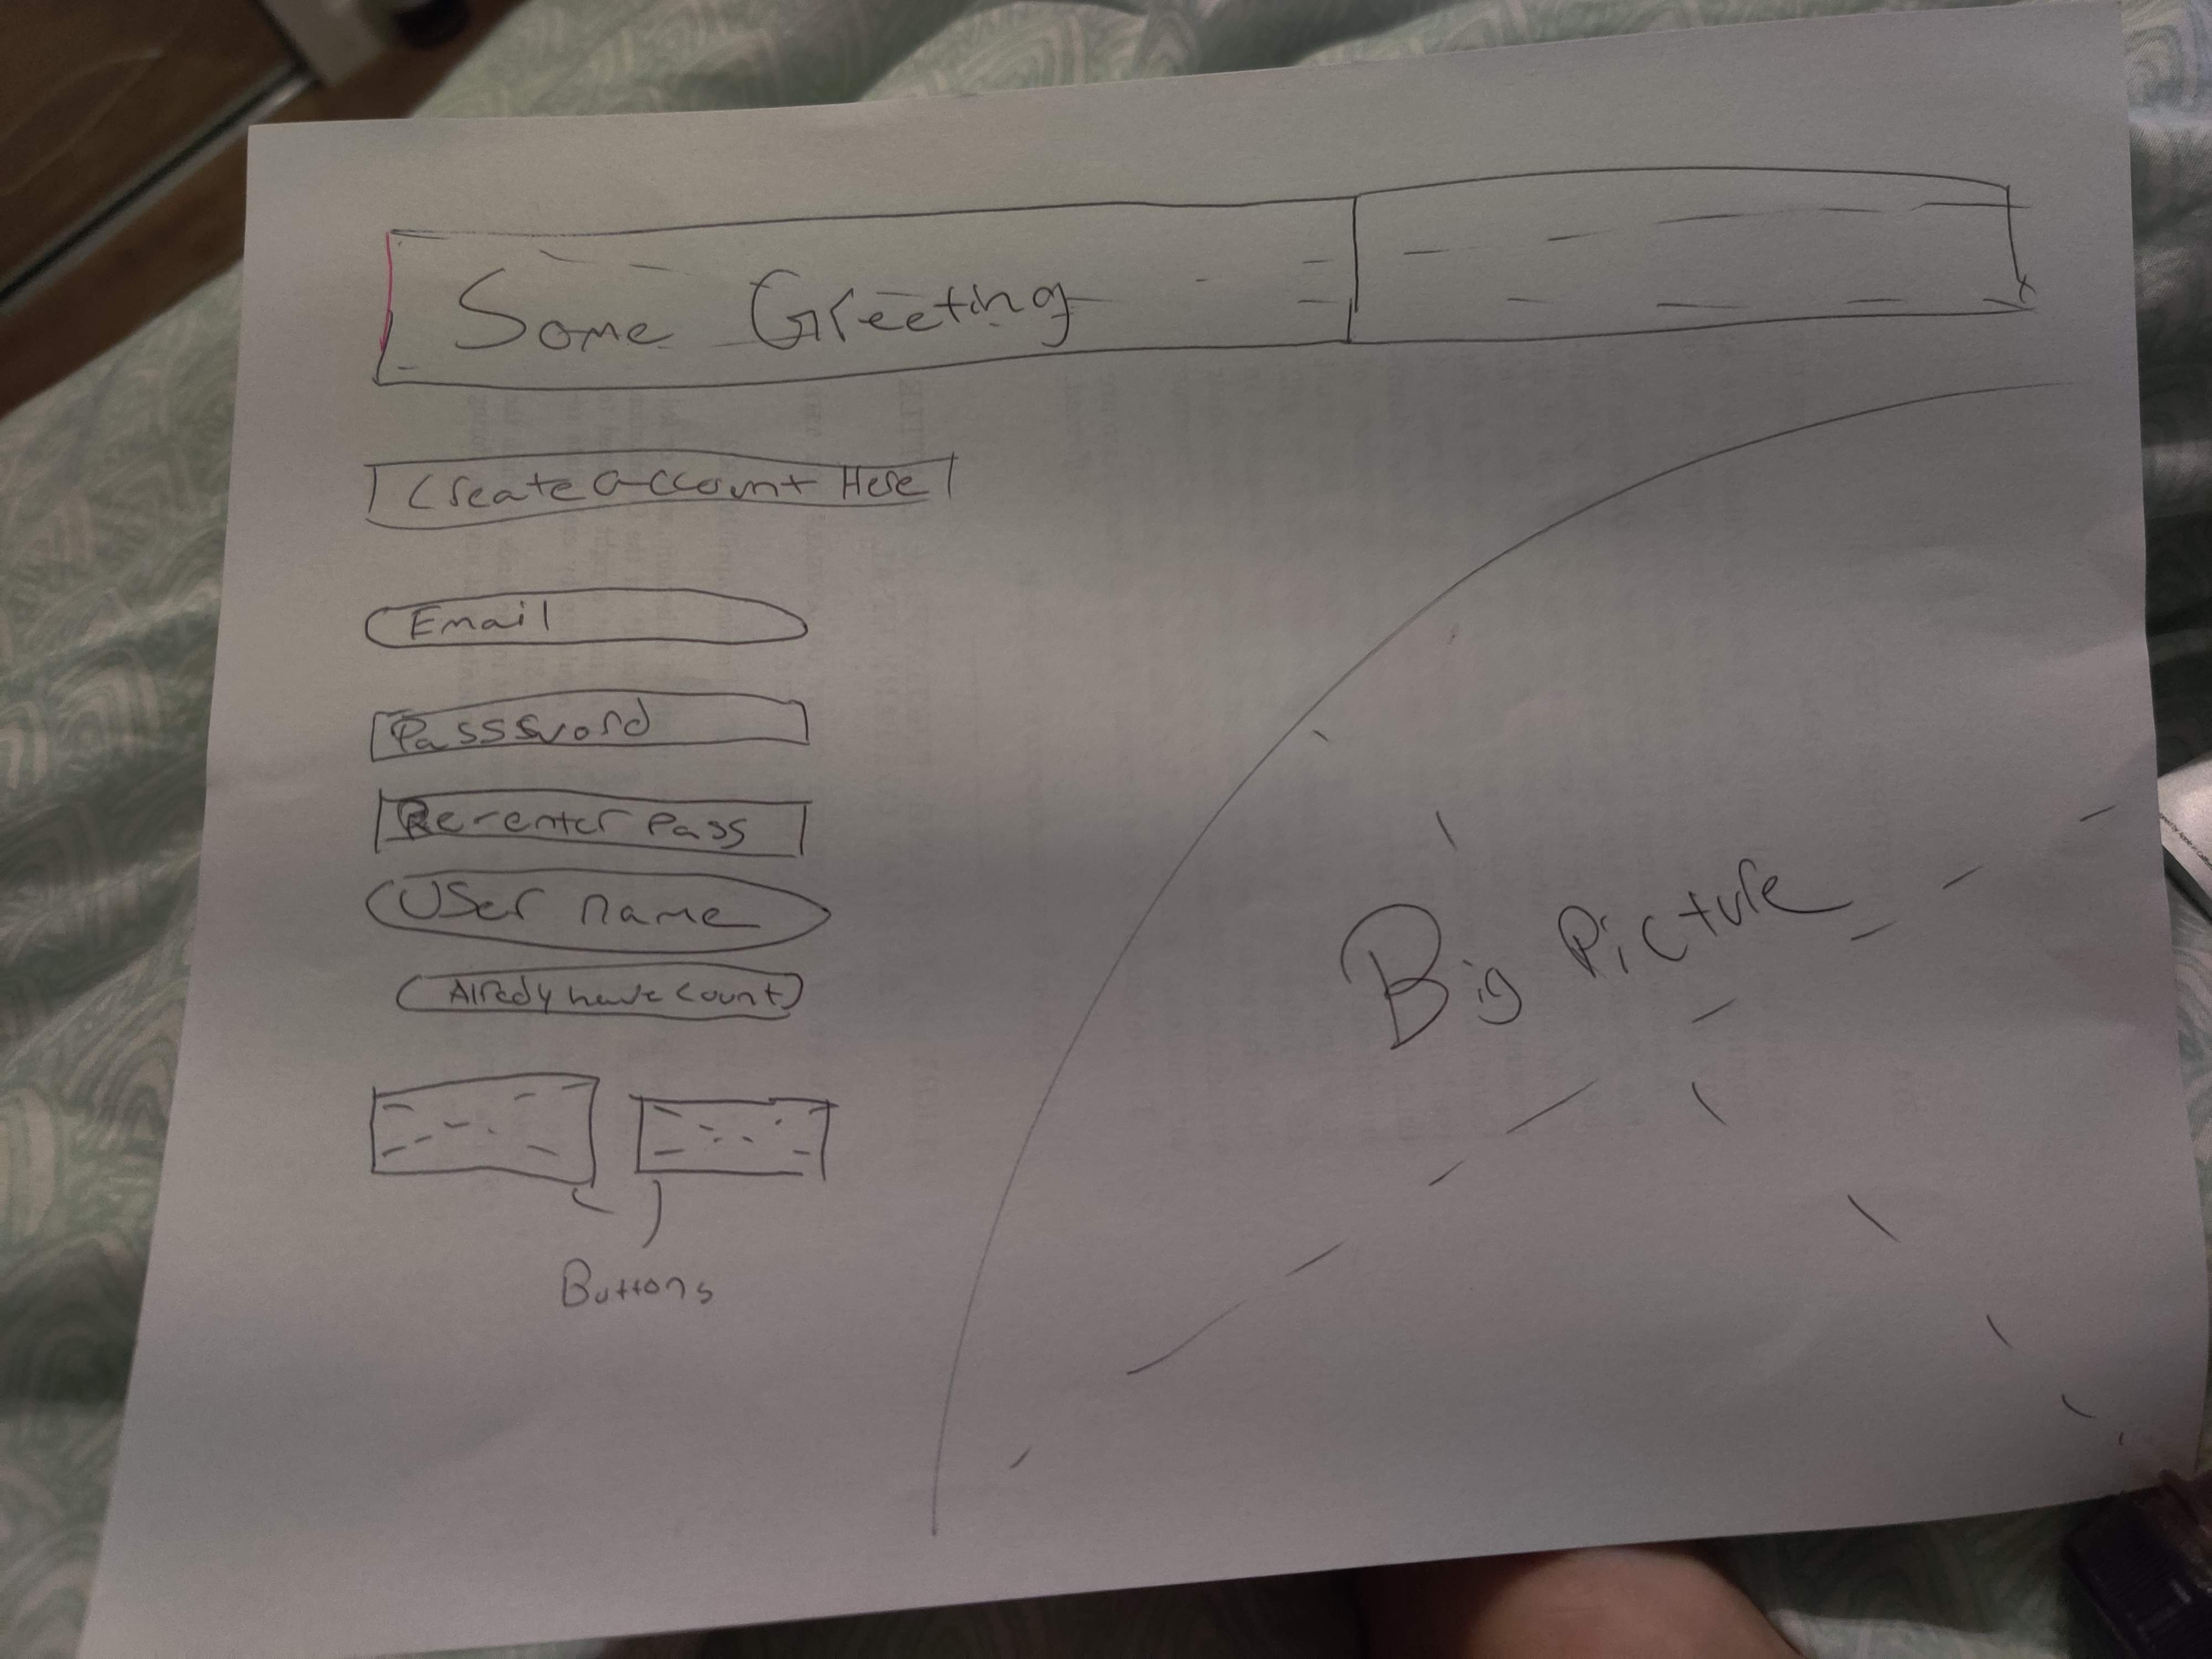 Some Greeting
Create account Here
Email
Passsword
Re-enter Pass
User name
Alredy have count
Buttons
Big Picture